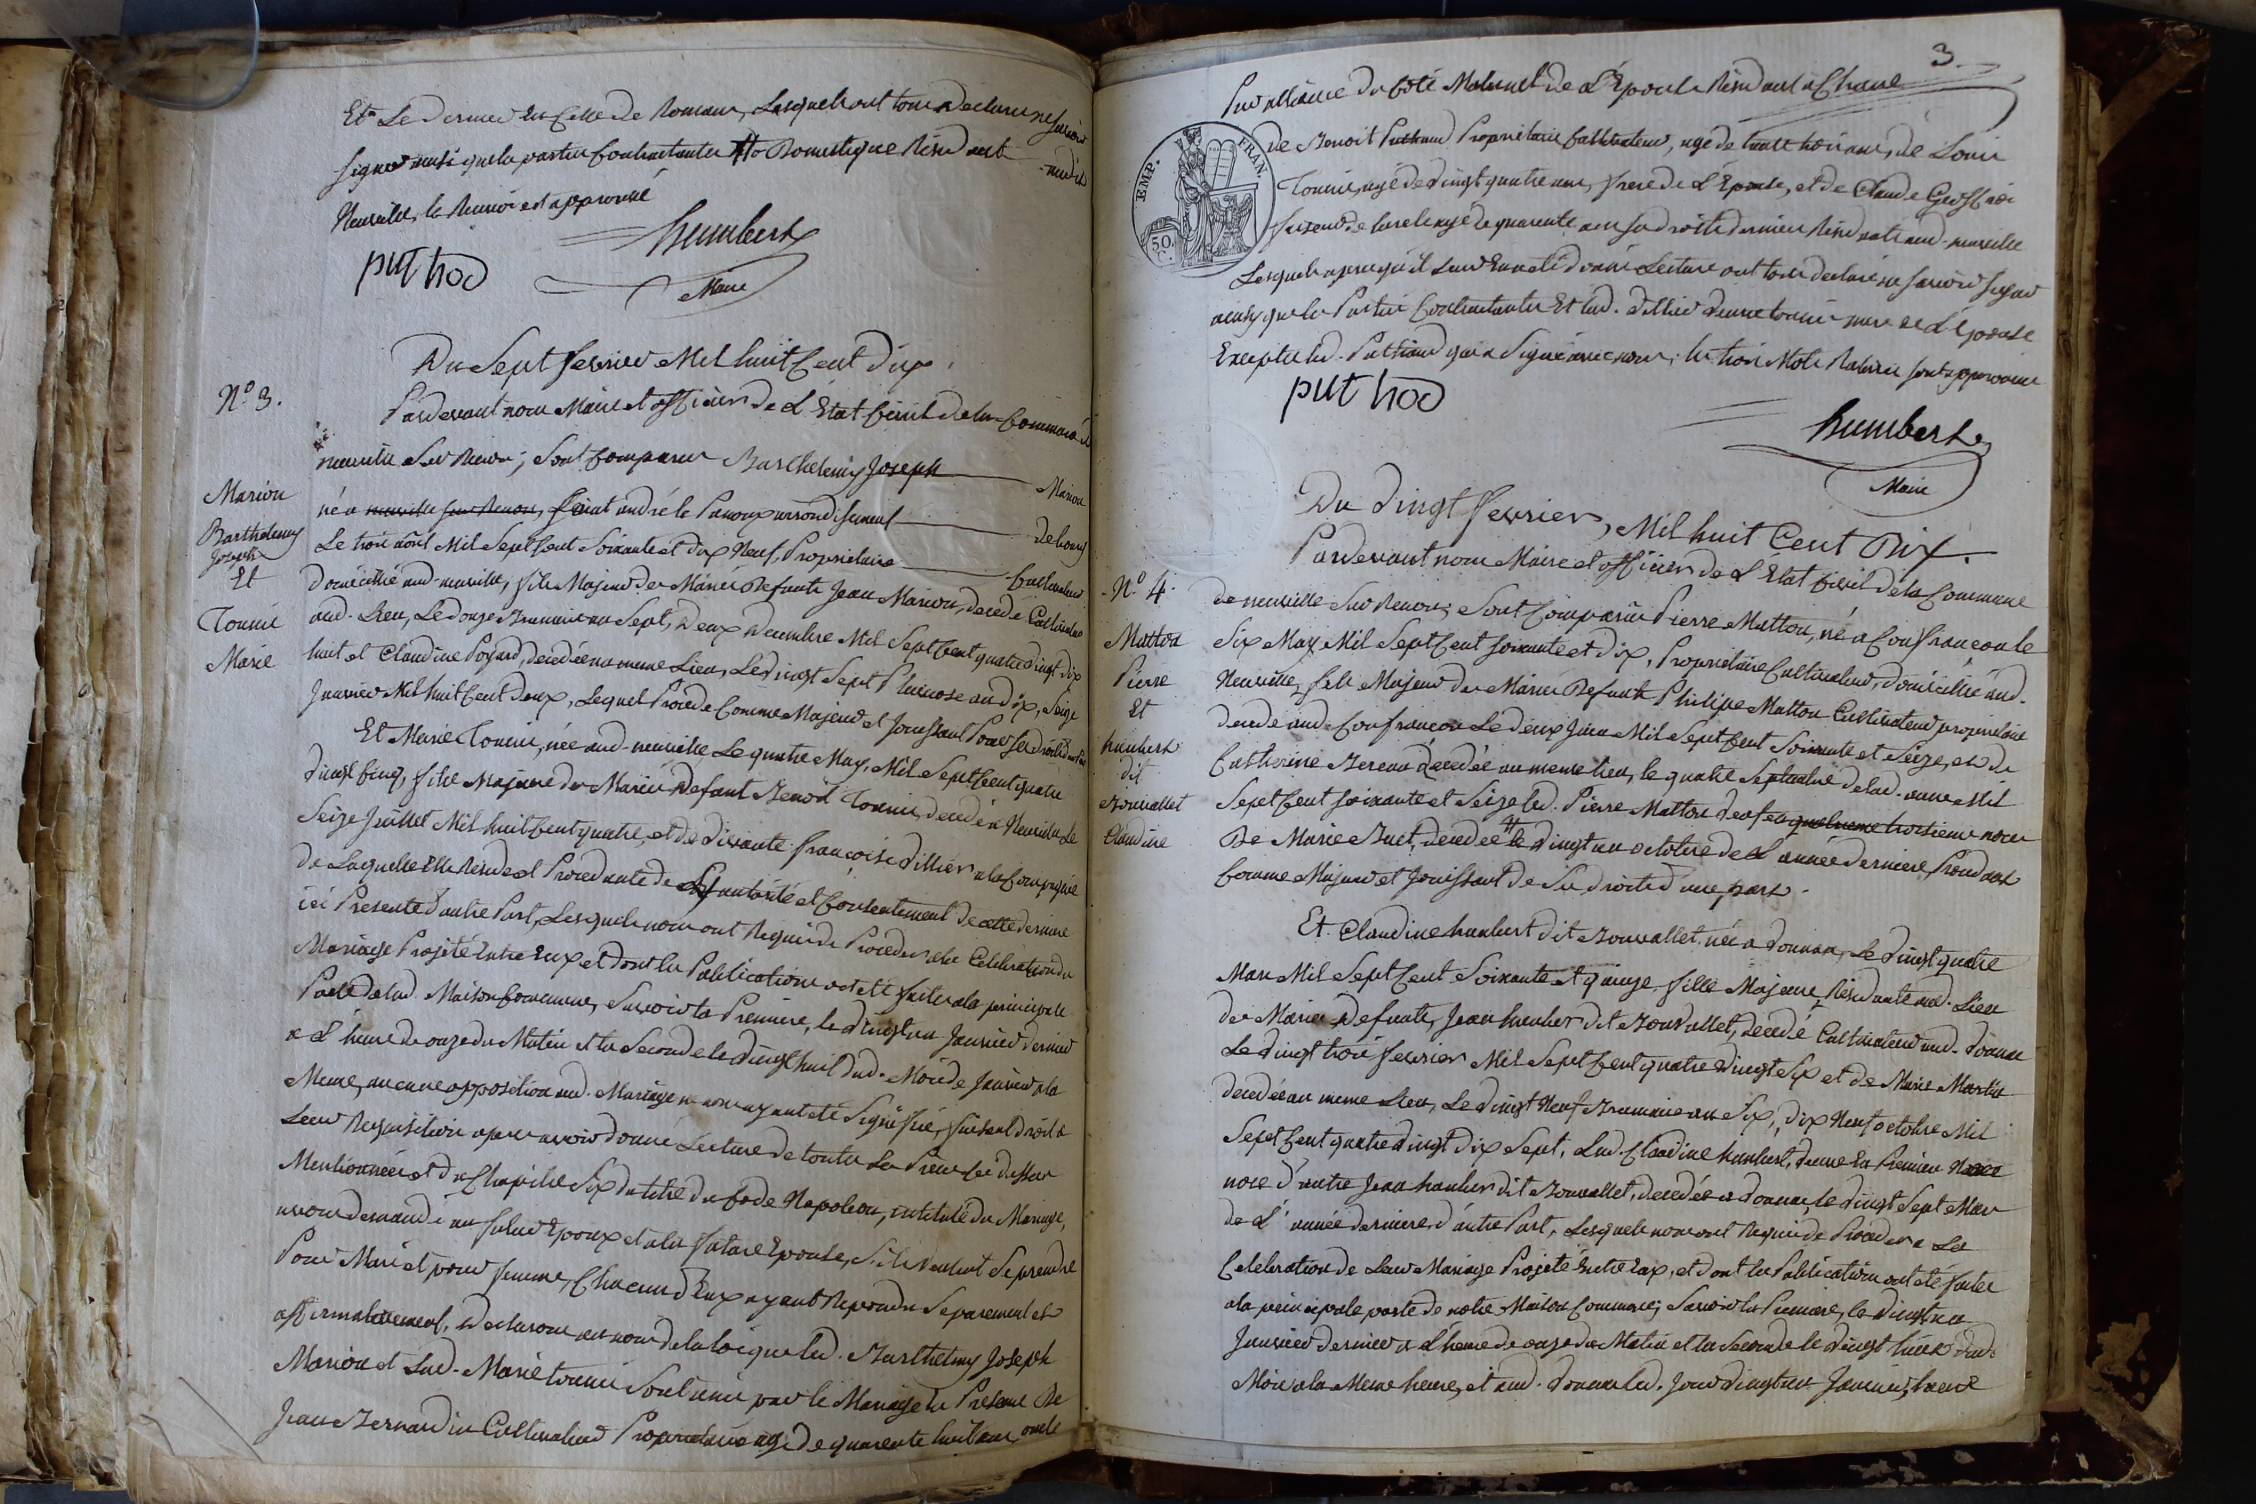 Et Le dernier En Celle de Romans, Lesquels ont tous declarés ne scavoir
signer ainsi que les parties Contractantes Domestique Résidant
audit
Neuville, le Renvoi est approuvé
puthod
humbert
Maire
Du Sept fevrier Mil huit Cent dix.
N.o 3.
Pardevant nous Maire et officier de L'Etat Civil de la Commune de
neuville Sur Renon; Sont Comparus Barthelemy Joseph Marion
Marion
Barthelemy
Joseph
Et
Tonnie
Marie
né a neuville sur Renon, Saint andré le Panoux arrondissement de bourg
Le trois août Mil Sept Cent Soixante et dix Neuf, Proprietaire Cultivateur
Domicillié aud. neuville, fils Majeur des Mariés Defunts Jean Marion, decedé Cultivateur
aud. Lieu, Le douze frimaire an Sept, Deux Decembre Mil Sept Cent quatre vingt dix
huit et Claudine Poyard, decedée au meme Lieu, Le vingt Sept Pluviose an dix, Seize
Janvier Mil huit Cent deux, Lequel Procede Comme Majeur et Jouissant de Ses droits
Et Marie Tonnie, née aud. neuville Le quatre May, Mil Sept Cent quatre
vingt Cinq, fille Majeure des Mariés Defunt Benoit Tonnie, decedé a Neuville, Le
Seize Juillet Mil huit Cent quatre, et de vivante francoise dillier a la Compagnie
de Laquelle Elle Reside et Procedante de autorité et Consentement de cette derniere
ici Presente d'autre Part, Lesquels nous ont Requis de Proceder a la Celebration du
Mariage Projeté Entre Eux et dont les Publications ont été faites a la principale
Porte de lad. Maison Commune, Savoir la Premiere, le vingt un Janvier dernier
a L'heure de onze du Matin et la Seconde le vingt huit dud. Mois de Janvier a la
Meme, aucune opposition aud. Mariage ne nous ayant été Signifié, faisant droit a
Leur Requisition apres avoir donné Lecture de toutes Les Pieces Cy dessus
Mentionnées et du Chapitre Six du titre du Code Napoleon, intitulé du Mariage,
avons demandé au futur Epoux et a la future Epouse, S'ils veulent Se prendre
Pour Mari et pour femme, Chacun d'Eux ayant Repondu Separement et
affirmativement, Declarons au nom de la loi que led. Barthelmy Joseph
Marion et Lad. Marie tonnie Sont unis par le Mariage En Presence De
Jean Bernardin Cultivateur Proprietaire agé de quarente huit ans, oncle
3.
Par alliance du Coté Maternel de L'Epouse Résidant a Chane
EMP. FRAN.
50. C.
de Benoit Puthaud Proprietaire Cultivateur, agé de trente trois ans, de Louis
Tonnie, agé de vingt quatre ans, frere de L'Epouse, et de Claude Geoffroi
agé de quarente ans Résidant aud. neuville
Lesquels apres qu'il Leur En a été donné Lecture ont tous declaré ne savoir signer
ainsy que les Parties Contractantes Et lad. dillier veuve tonnie mere de L'Epouse
Excepté led. Puthaud qui a Signé avec nous; les trois Mots Raturés sont approuvés
puthod
humbert
Maire
Du vingt fevrier, Mil huit Cent Dix.
N.o 4.
Pardevant nous Maire et officier de L'Etat Civil de la Commune
de neuville Sur Renon; Sont Comparus Pierre Mutton, né a Confrancon le
Mutton
Pierre
Et
humbert
dit
Bouvallet
Claudine
Six May Mil Sept Cent soixante et dix, Proprietaire Cultivateur, domicillié aud.
Neuville, fils Majeur des Mariés Defunts Philipe Mutton Cultivateur proprietaire
decedé aud. Confrancon Le deux Juin Mil Sept Cent Soixante et Seize, et de
Catherine Bereau decedée au meme lieu, le quatre Septembre de lad. année Mil
Sept Cent soixante et Seize led. Pierre Mutton veuf en troisieme noces
De Marie Buet, decedée le vingt un octobre de L'année derniere, Procedant
Comme Majeur et Jouissant de Ses droits d'une part.
Et Claudine humbert dit Bouvallet née a donnan, Le vingt quatre
Mars Mil Sept Cent Soixante et quinze, fille Majeure, Résidante aud. Lieu
des Mariés Defunts, Jean humbert dit Bouvallet, decedé Cultivateur aud. donnan
Le vingt trois fevrier Mil Sept Cent quatre vingt Six et de Marie Martin
decedée au meme Lieu, Le vingt Neuf Brumaire an Six, dix Neuf octobre Mil
Sept Cent quatre vingt dix Sept, Lad. Claudine humbert, veuve En Premier
noce d'autre Jean humber dit Bouvallet, decedé a donnan, le vingt Sept Mars
de L'année derniere, d'autre Part, Lesquels nous ont Requis de Proceder a La
Celebration de Leur Mariage Projeté Entre Eux, et dont les Publications ont été faites
a la principale porte de notre Maison Commune; Savoir la Premiere, le vingt un
Janvier dernier a L'heure de onze du Matin et la Seconde le vingt huit dud.
Mois a la Meme heure, et aud. donnan led. Jour vingt un Janvier,